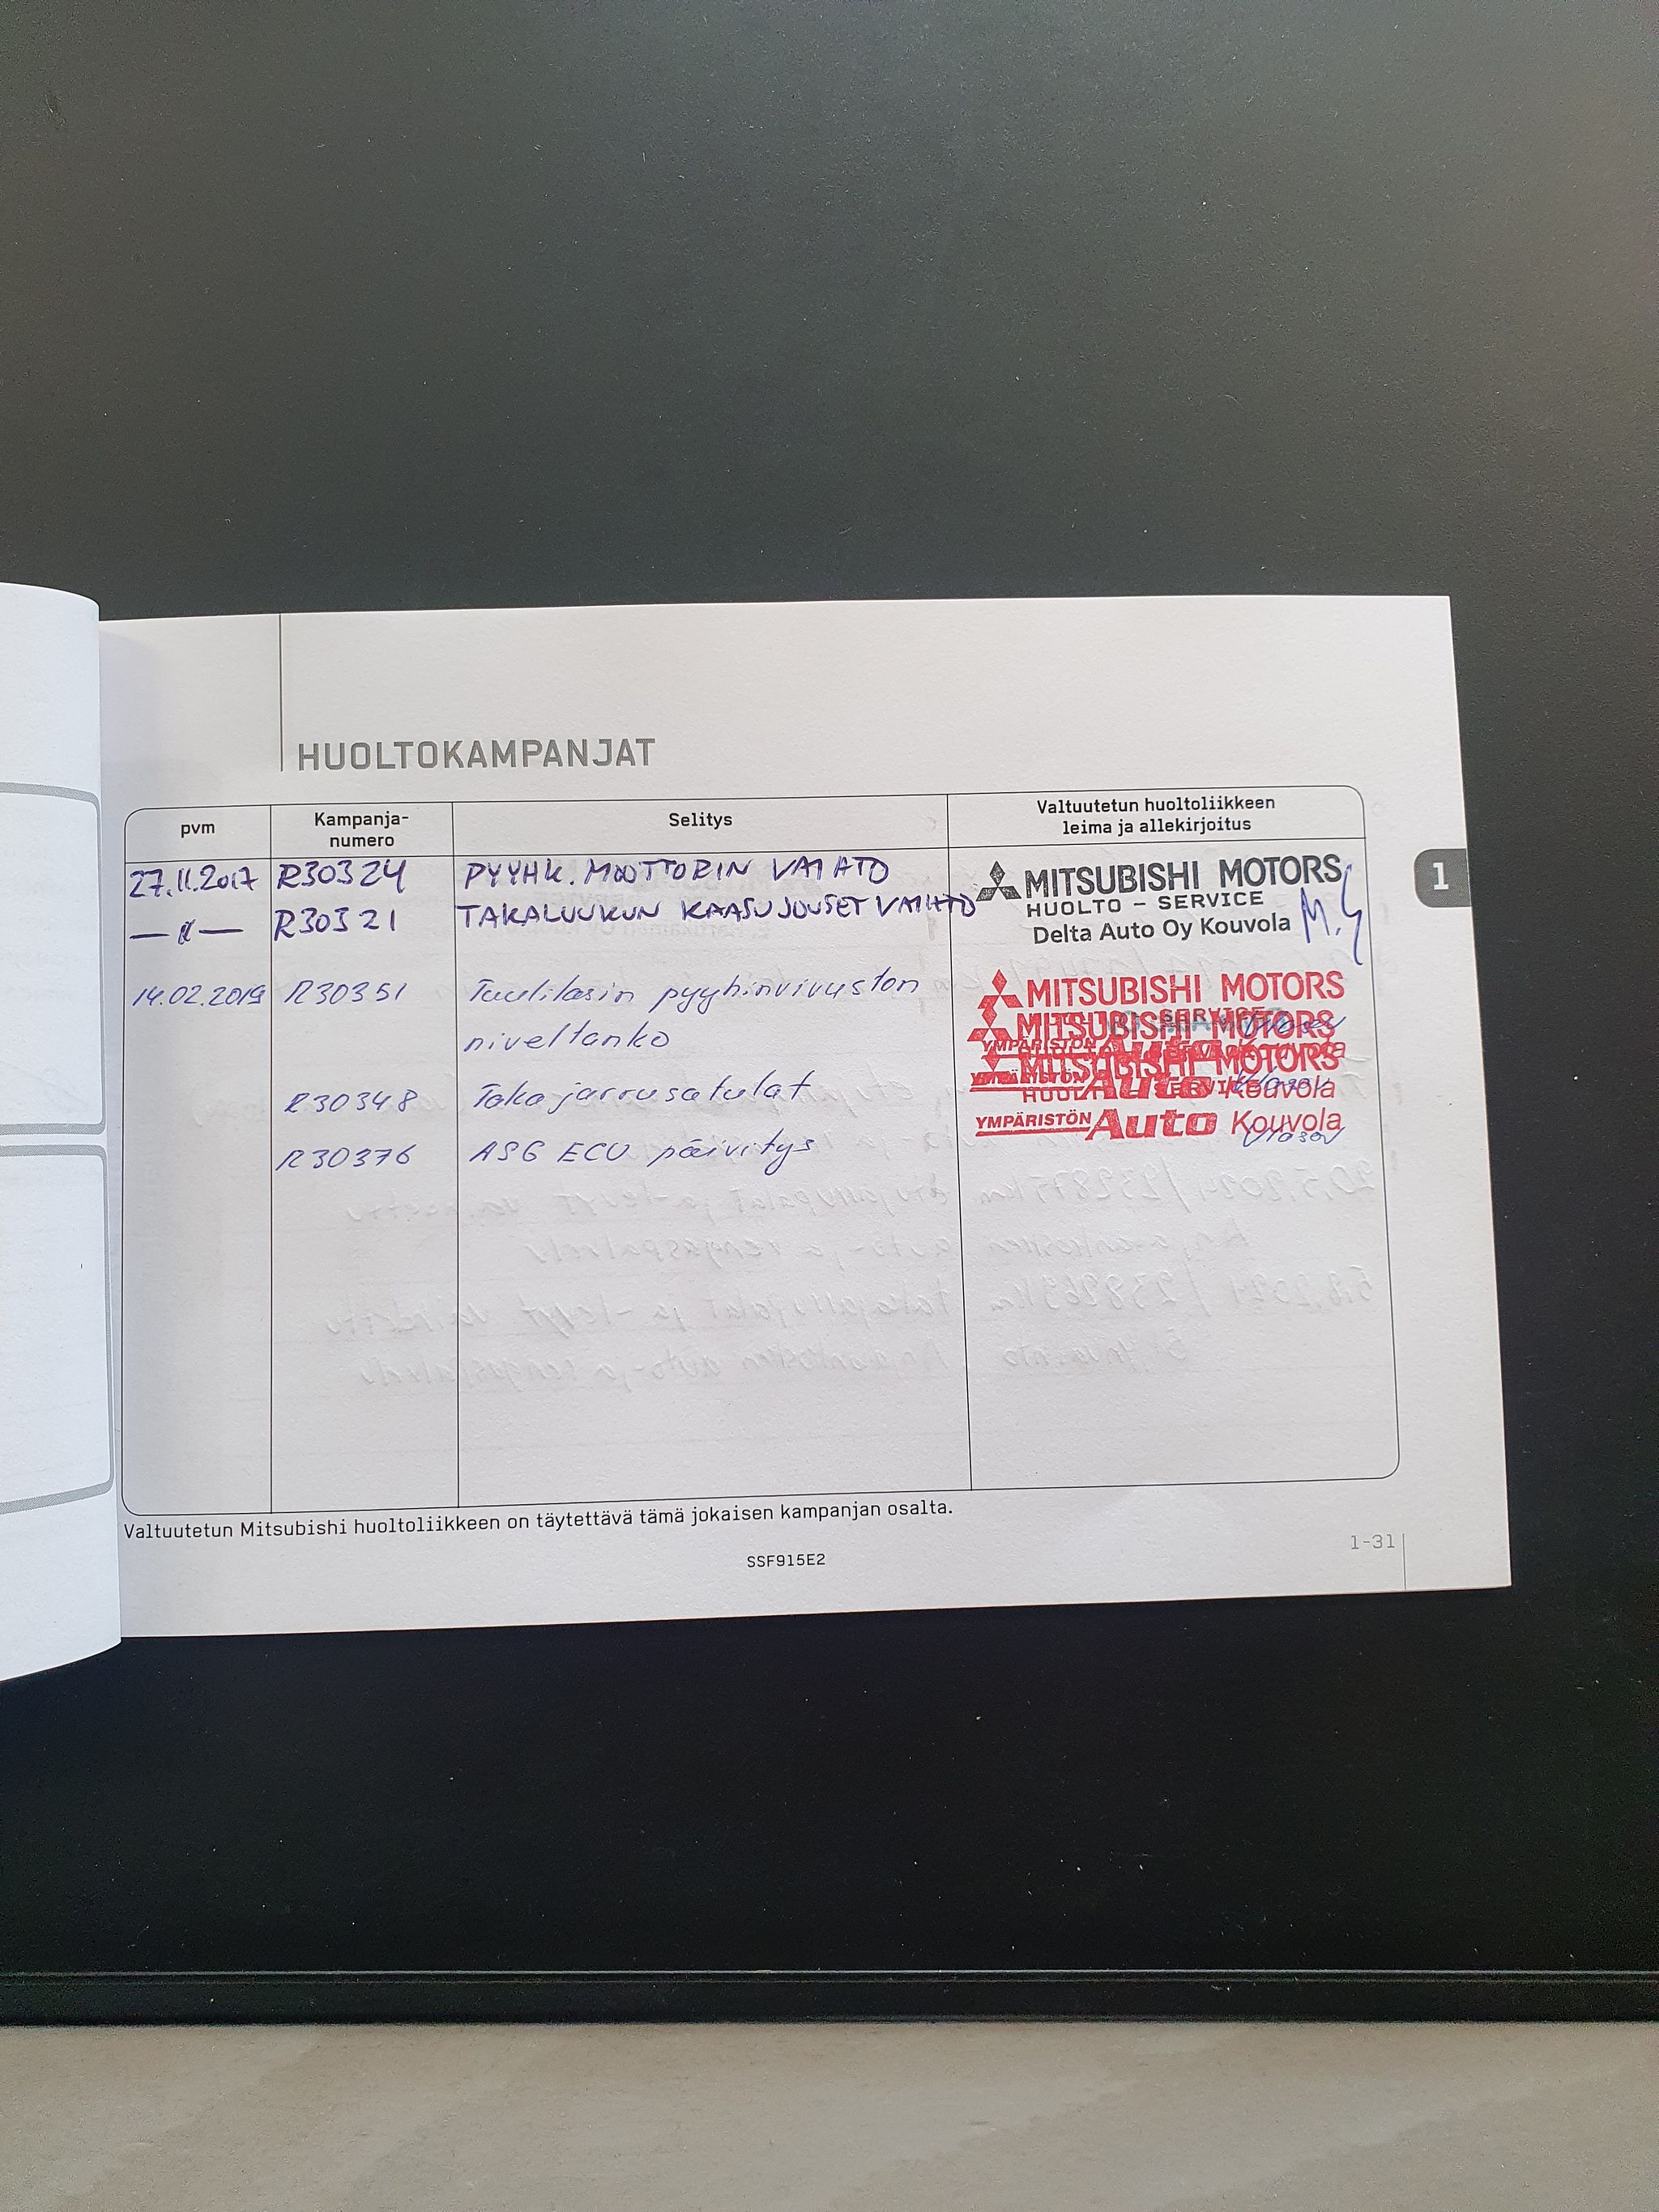 HUOLTOKAMPANJAT
pvm
Kampanja-
numero
Selitys
Valtuutetun huoltoliikkeen
leima ja allekirjoitus
27.11.2017 R30324 PYYHK. MOOTTORIN VAIHTO
—"— R30321 TAKALUUKUN KAASUJOUSET VAIHTO
MITSUBISHI MOTORS
HUOLTO - SERVICE
Delta Auto Oy Kouvola
M.S
1
14.02.2019 R30351 Tuulilasin pyyhinvivuston
niveltanko
R30348 Takajarrusatulat
R30376 ASG ECU päivitys
MITSUBISHI MOTORS
MITSUBISHI MOTORS
YMPÄRISTÖN Auto Kouvola
MITSUBISHI MOTORS
YMPÄRISTÖN Auto Kouvola
YMPÄRISTÖN Auto Kouvola
Valtuutetun Mitsubishi huoltoliikkeen on täytettävä tämä jokaisen kampanjan osalta.
SSF915E2
1-31